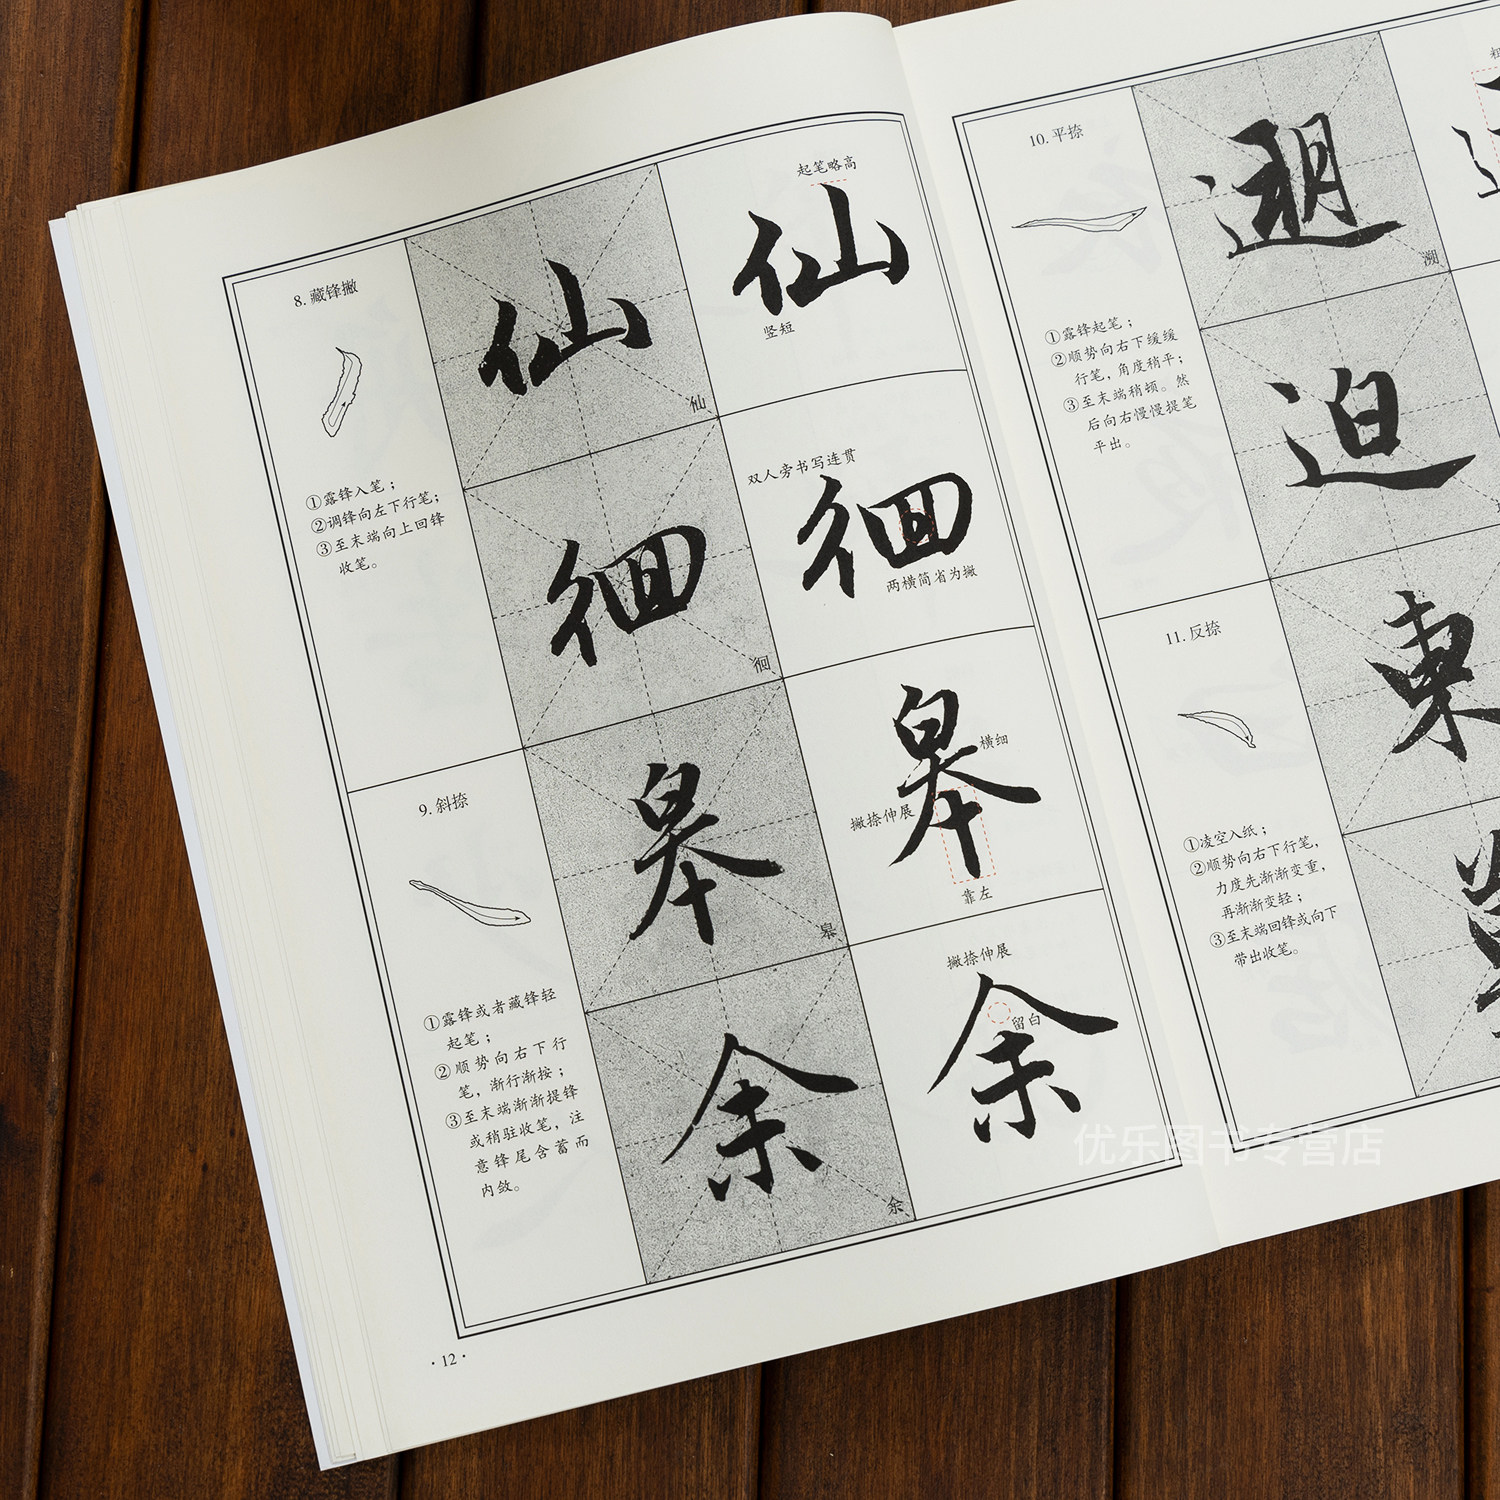 8. 藏锋撇
①露锋入笔；
②调锋向左下行笔；
③至末端向上回锋
收笔。
仙
仙
起笔略高
仙
竖短
徊
徊
双人旁书写连贯
徊
两横简省为撇
9. 斜捺
①露锋或者藏锋轻
起笔；
②顺势向右下行
笔，渐行渐按；
③至末端渐渐提锋
或稍驻收笔，注
意锋尾含蓄而
内敛。
皋
皋
皋
横细
撇捺伸展
靠左
余
余
撇捺伸展
余
留白
·12·
10. 平捺
①露锋起笔；
②顺势向右下缓缓
行笔，角度稍平；
③至末端稍顿。然
后向右慢慢提笔
平出。
遡
溯
迫
11. 反捺
①凌空入纸；
②顺势向右下行笔，
力度先渐渐变重，
再渐渐变轻；
③至末端回锋或向下
带出收笔。
東
优乐图书专营店